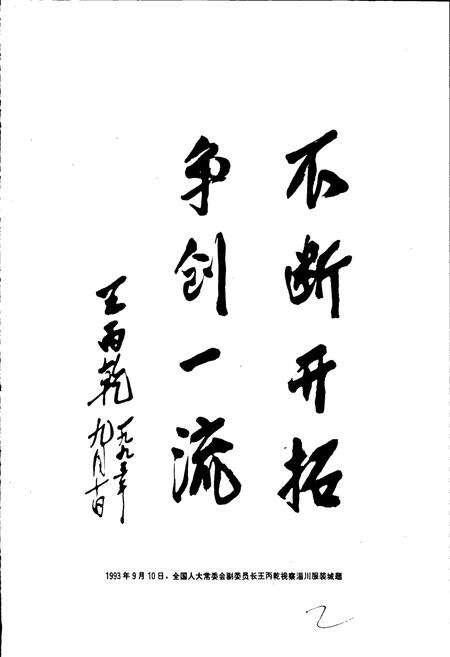 不断开拓
争创一流
王丙乾
一九九三年
九月十日
1993年9月10日，全国人大常委会副委员长王丙乾视察淄川服装城题